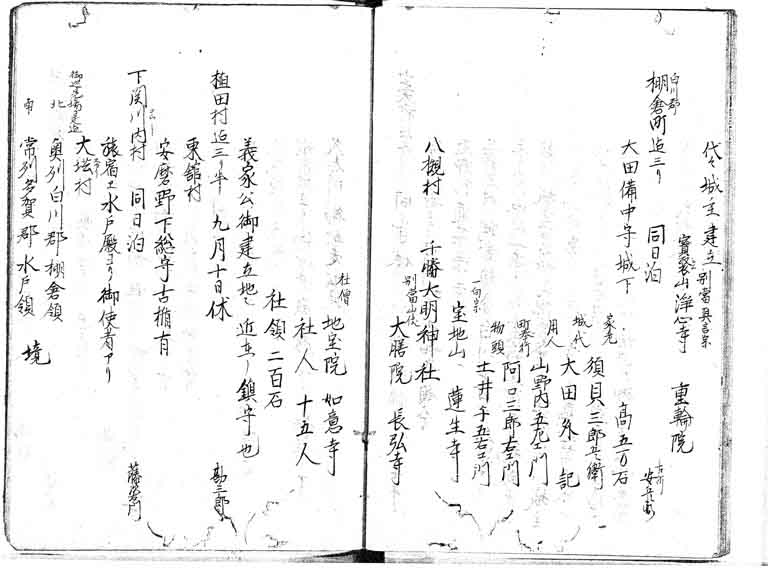 代々城主建立 別當真言宗
寳聚山浄心寺 重輪院
白川郡
棚倉町迄三り 同日泊
安兵衛
大田備中守城下 高五万石
家老 須貝三郎兵衛
城代 大田外記
用人 山野内五左エ門
町奉行 阿口三郎左エ門
物頭 土井千五右エ門
一向宗
宝地山 蓮生寺
八槻村 千勝大明神社
別當山伏
大膳院 長弘寺
社僧
地宝院 如意寺
社人 十五人
社領 二百石
義家公御建立地 近在ノ鎮守也
植田村迄三り半 九月十日休 勘三郎
東舘村
安磨野下総守古楯有
下関川内村 同日泊 藤左衛門
旅宿エ水戸殿ヨリ御使者アリ
御巡見場是迄
大塙村
北 奥州白川郡棚倉領
南 常州多賀郡水戸領 境